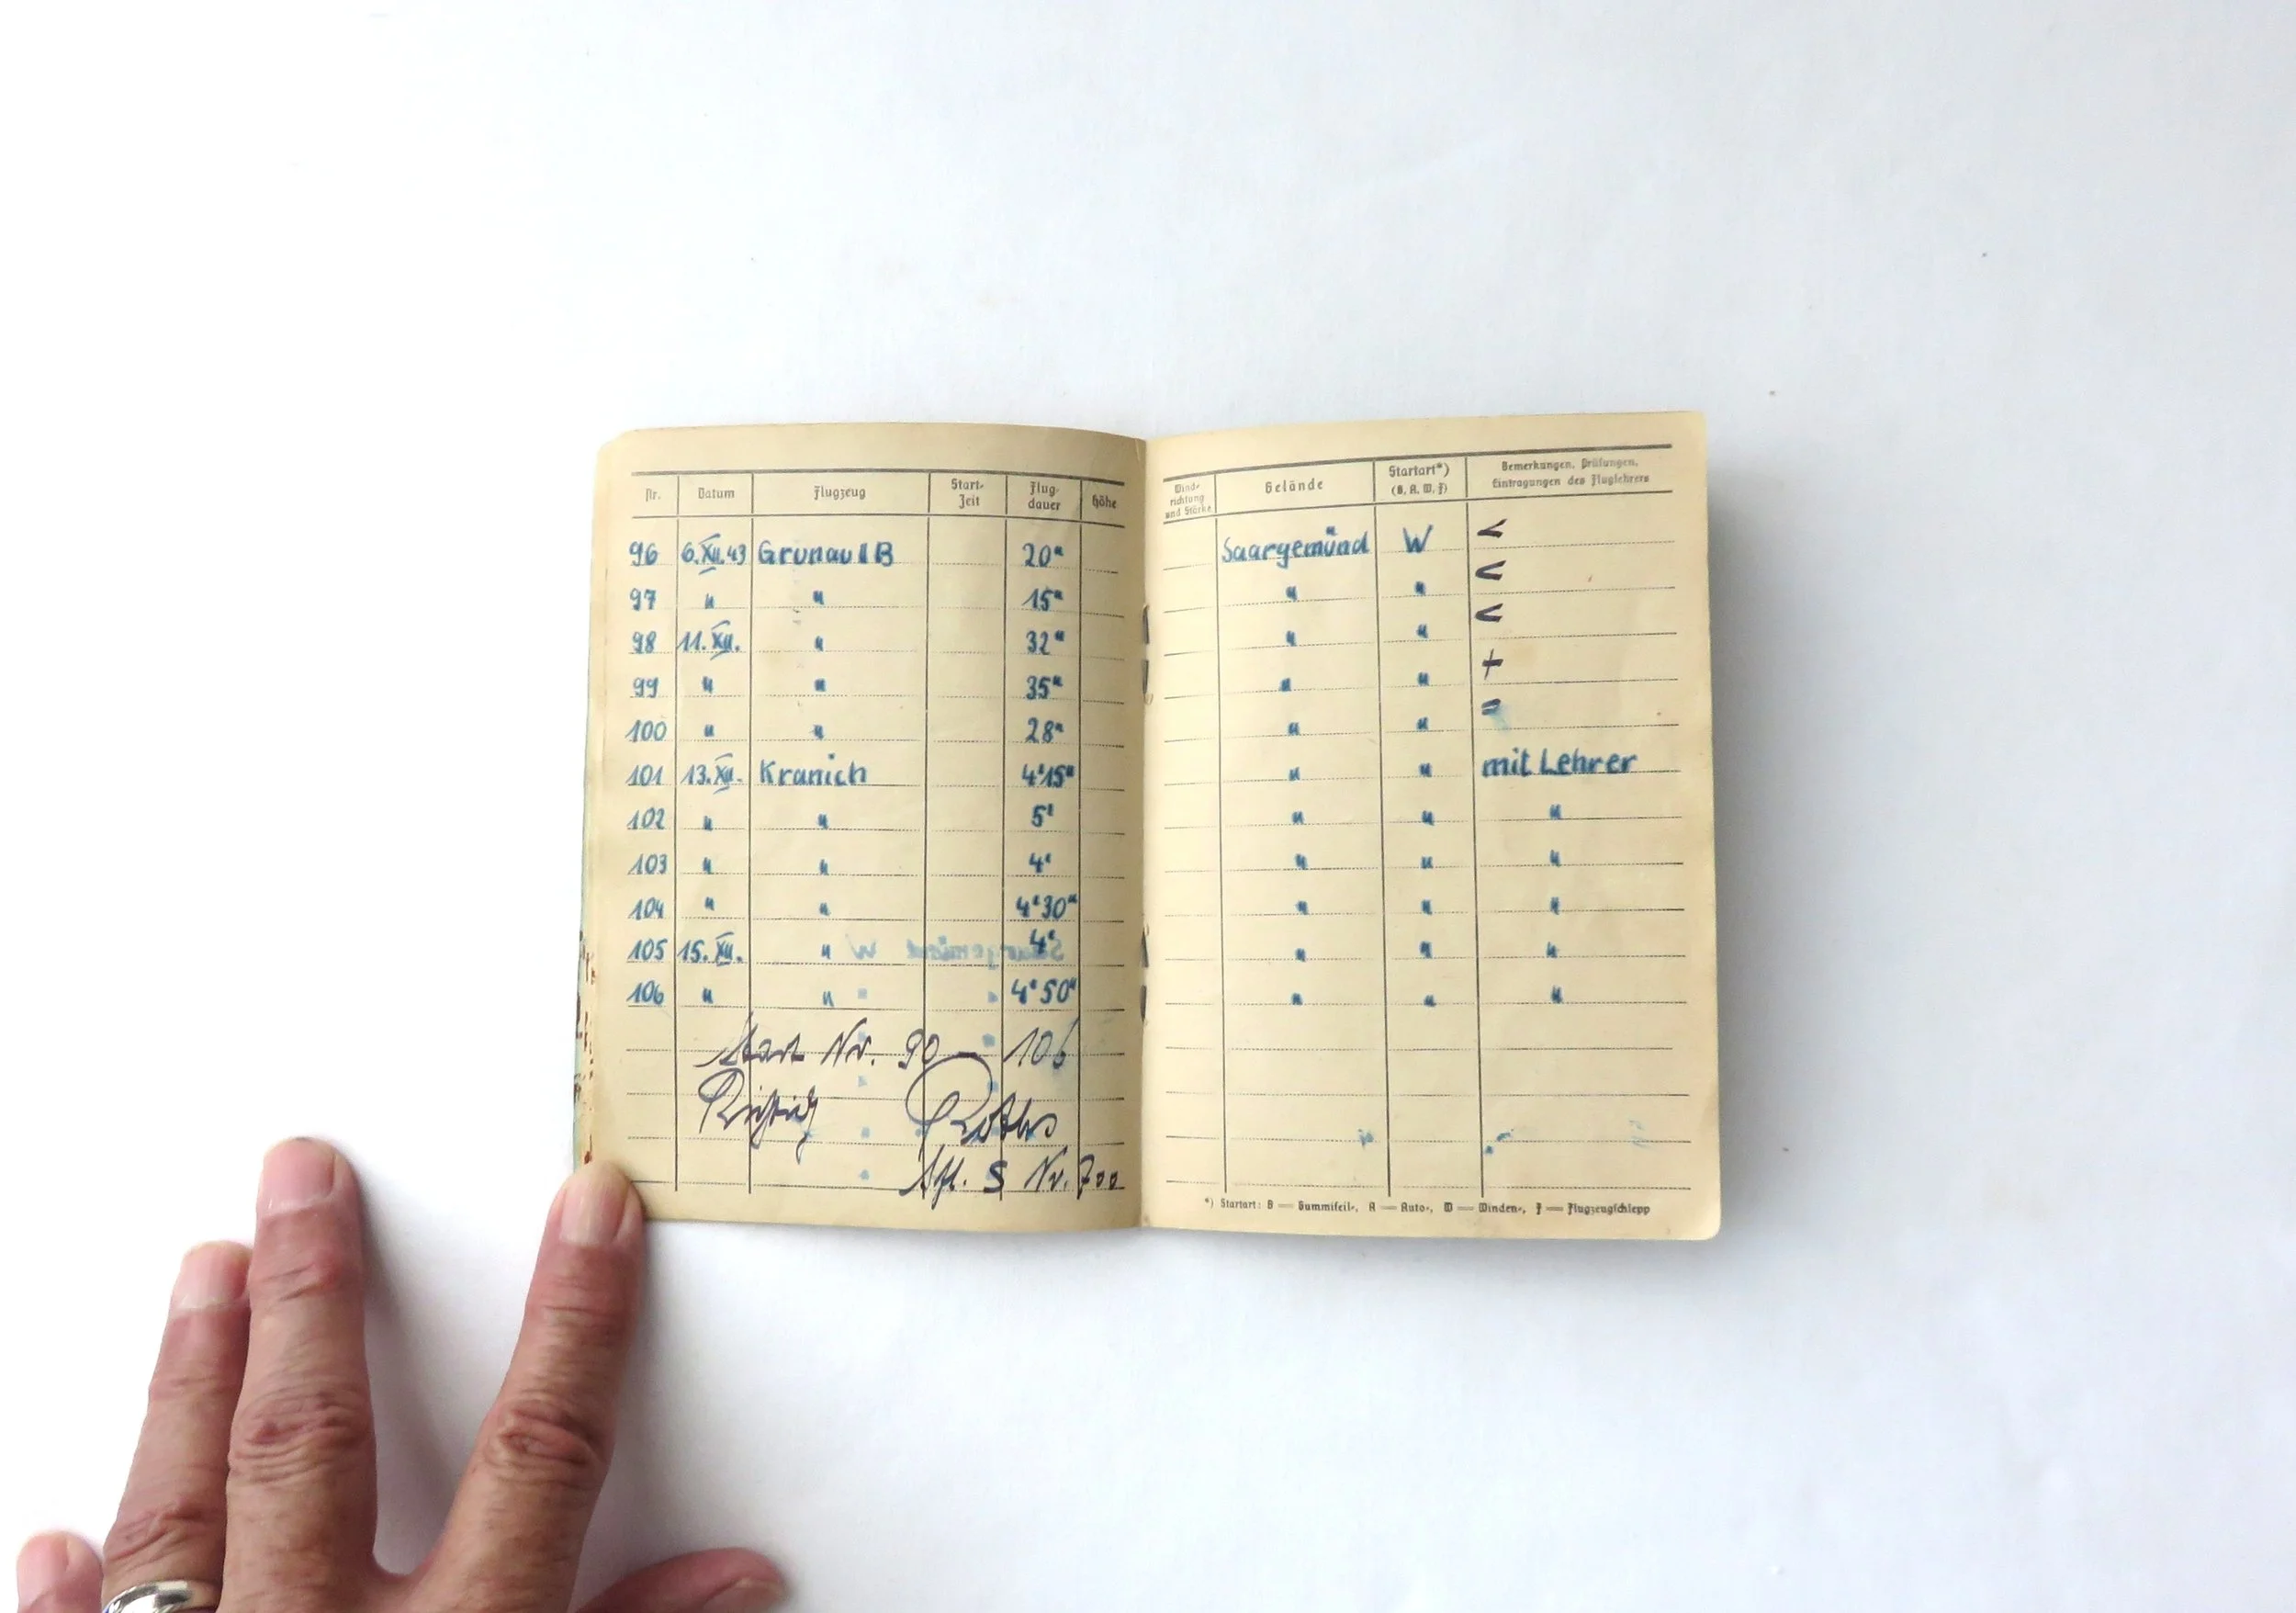 Nr. Datum Flugzeug Start-Zeit Flug-dauer Höhe Wind-richtung und Stärke Gelände Startart*) (G, A, W, F) Bemerkungen, Prüfungen, Eintragungen des Fluglehrers
96 6.XII.43 Grunau IIB 20" Saargemünd W <
97 " " 15" " " <
98 11.XII. " 32" " " <
99 " " 35" " " +
100 " " 28" " " =
101 13.XII. Kranich 4'15" " " mit Lehrer
102 " " 5' " " "
103 " " 4' " " "
104 " " 4'30" " " "
105 15.XII. " 4' " " "
106 " " 4'50" " " "
Start Nr. 90 — 106
Richtig
S Nr. 700
*) Startart: G — Gummiseil-, A — Auto-, W — Winden-, F — Flugzeugschlepp